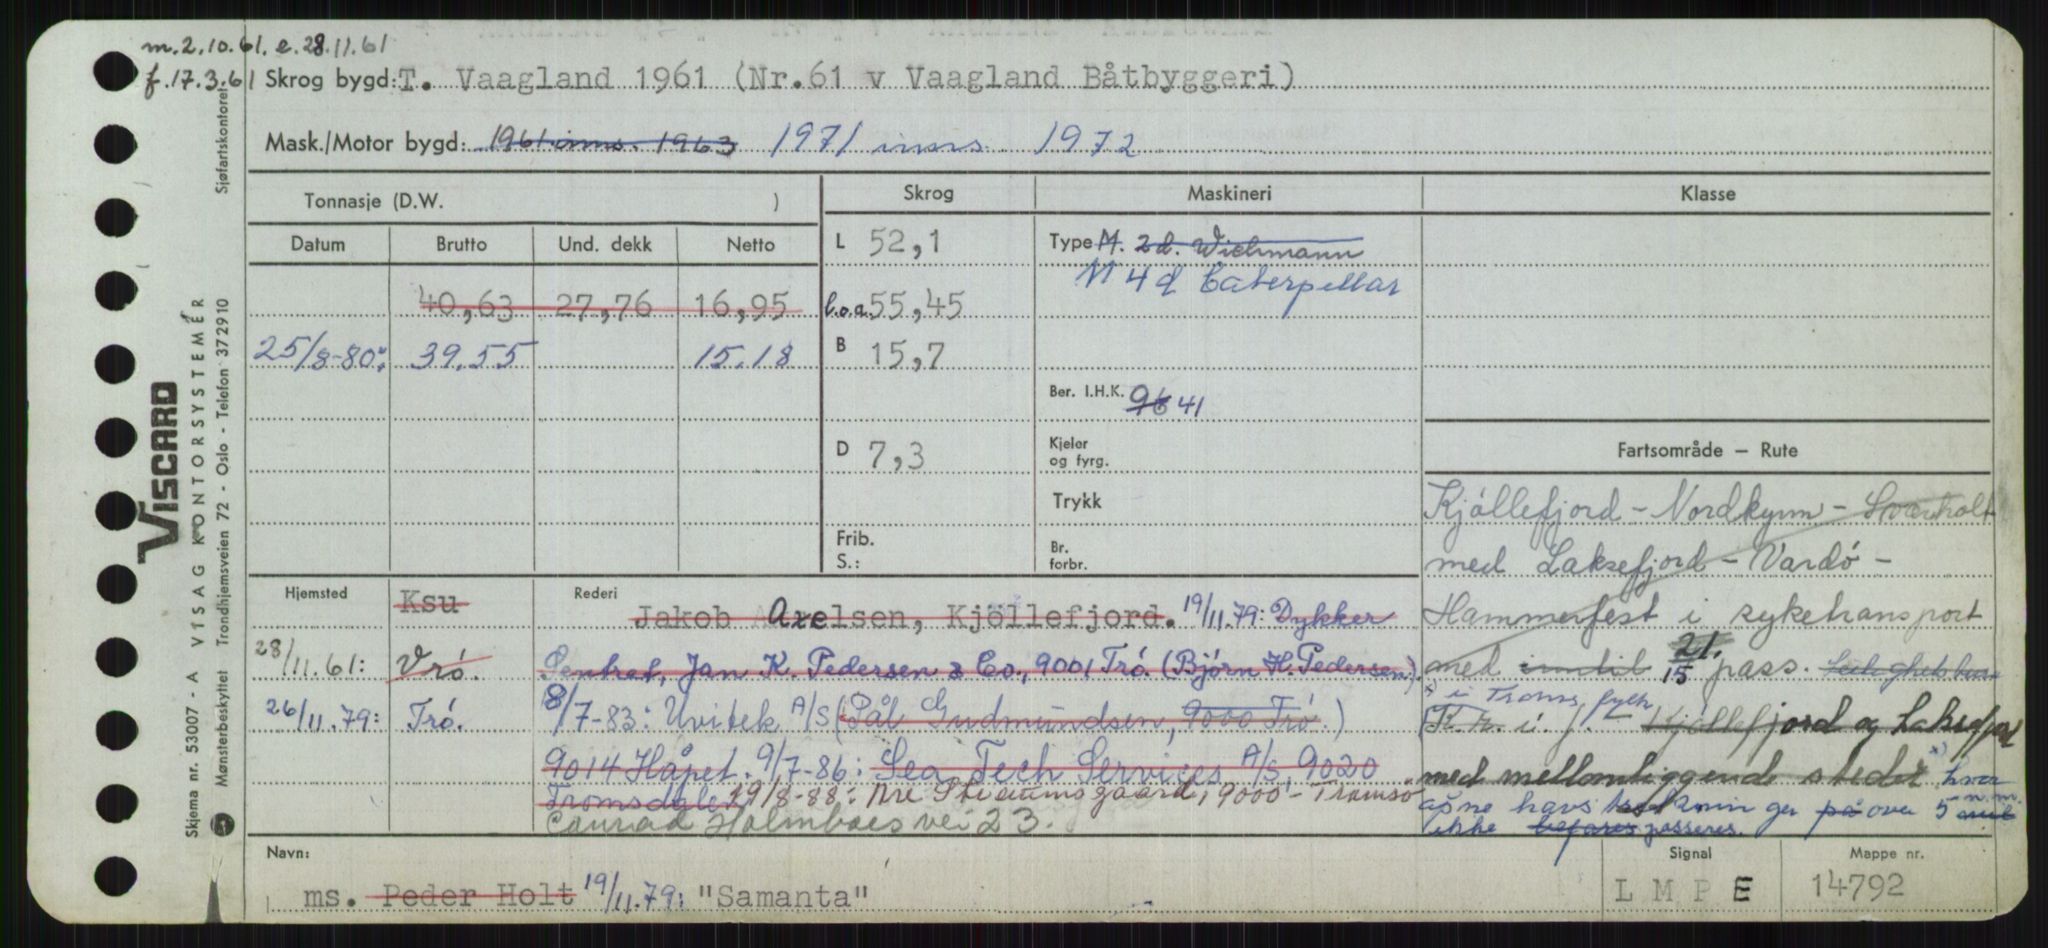 m. 2.10.61. e. 28.11.61
f. 17.3.61 Skrog bygd: T. Vaagland 1961 (Nr.61 v Vaagland Båtbyggeri)
Mask./Motor bygd: 1961 inns. 1963 1971 inns. 1972
Tonnasje (D.W. )
Skrog
Maskineri
Klasse
Datum Brutto Und. dekk Netto
L 52,1
Type M. 2d. Wichmann
M 4 d Caterpillar
40,63 27,76 16,95
l.o.a. 55,45
25/8-80: 39.55 15.18
B 15,7
Ber. I.H.K. 96 41
D 7,3
Kjeler
og fyrg.
Trykk
Frib.
S.:
Br.
forbr.
Fartsområde – Rute
Kjöllefjord - Nordkynn - Sværholt
med Laksefjord - Vardö -
Hammerfest i syketransport
med inntil 21. 15 pass.
*) i Troms fylke
(K.k. i f. - Kjöllefjord og Laksefjord
med mellomliggende steder *) hvor
åpne havstrekninger på over 5 n.m.
ikke befares passeres.
Hjemsted Ksu
Rederi Jakob Axelsen, Kjöllefjord. 19/11.79: Dykker
28/11.61: Vrö. Sentral, Jan K. Pedersen & Co., 9001 Trö. (Björn H. Pedersen).
26/11.79: Trö. 8/7-83: Uvitek A/S (Pål Gudmundsen, 9000 Trö.)
9014 Håpet. 9/7-86: Sea Tech Services A/S, 9020
Tromsdalen 19/8-88: Are Straumsgaard, 9000 - Tromsö
Conrad Holmboes vei 23.
Navn:
ms. Peder Holt 19/11.79: "Samanta"
Signal
L M P E
Mappe nr.
14792
VISCARD
Skjema nr. 53007 - A VISAG KONTORSYSTEMER Sjøfartskontoret
Mønsterbeskyttet Trondhjemsveien 72 - Oslo - Telefon 372910